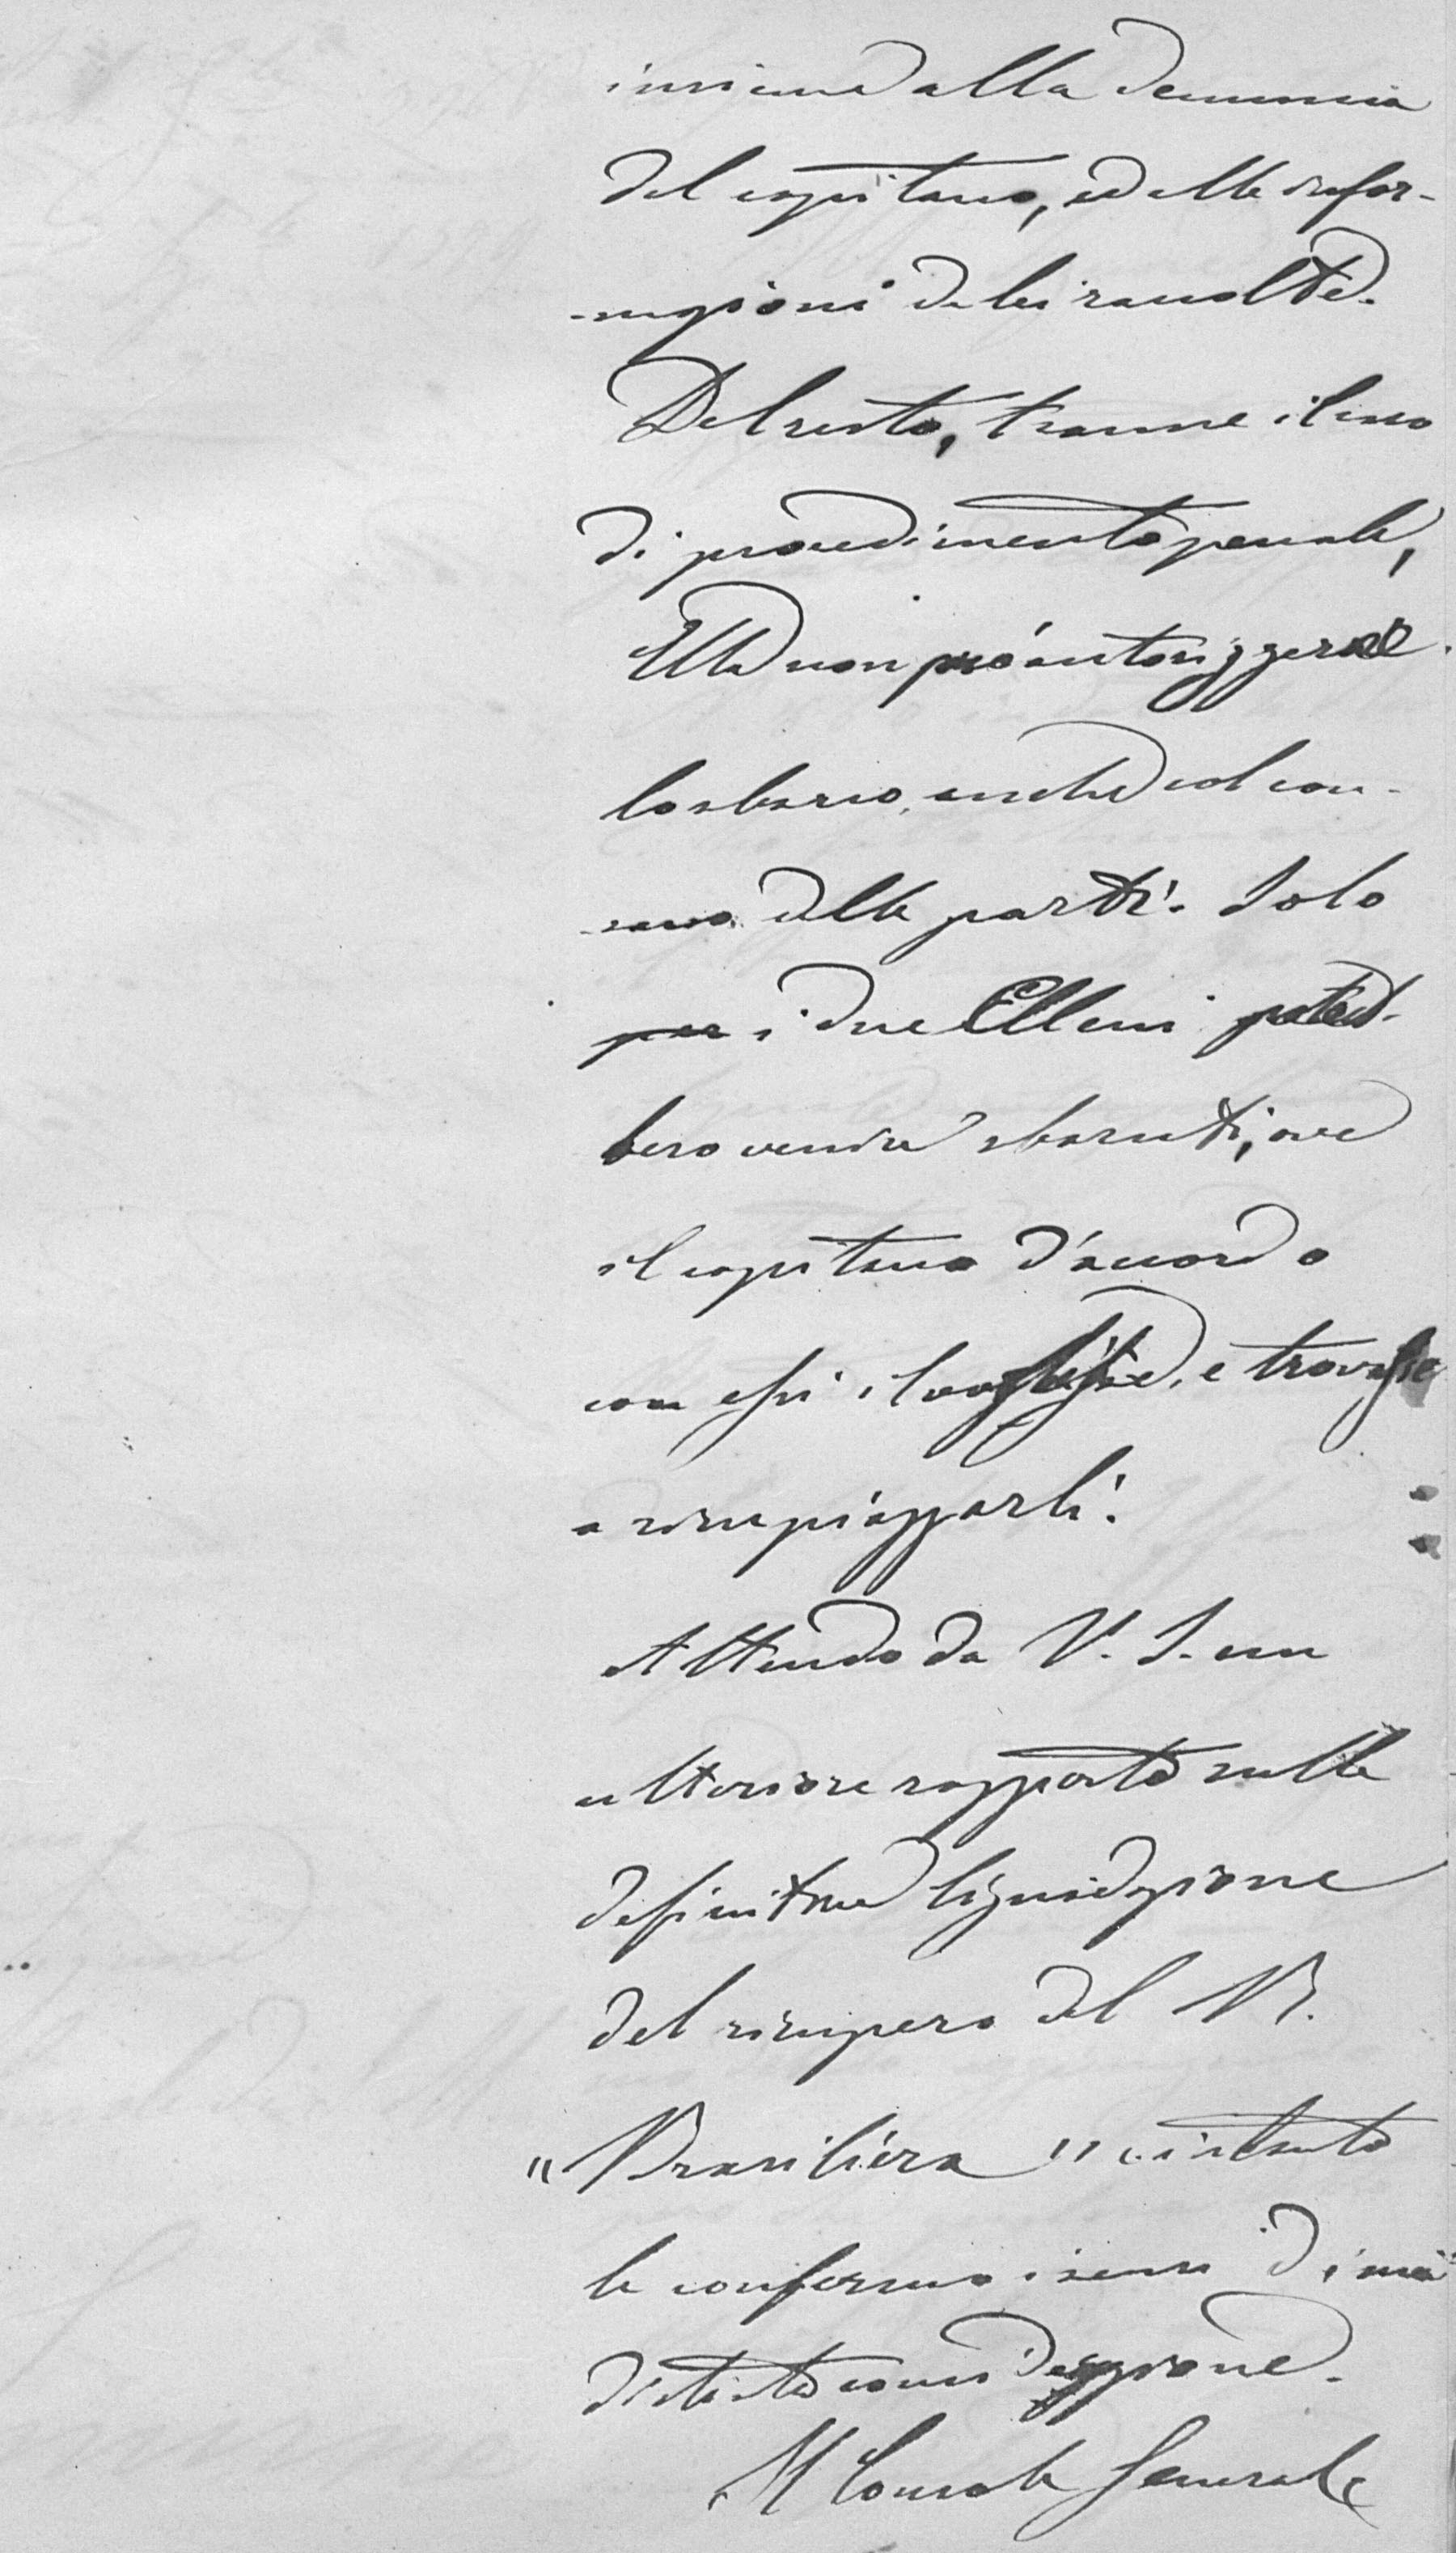 insieme alla denuncia
del capitano, ed alle infor-
-mazioni da lei raccolte.
Del resto, tranne il caso
di procedimento penale,
Ella non può autorizzare
lo sbarco, anche col con-
-senso delle parti. Solo
i due Elleni potreb-
bero venire sbarcati, ove
il capitano d'accordo
con essi il volesse, e trovasse
a rimpiazzarli.
Attendo da V. S. un
ulteriore rapporto sulla
definitiva liquidazione
del ricupero del B.
"Brasiliera" e intanto
le confermo i sensi di mia
distinta considerazione.
Il Console Generale